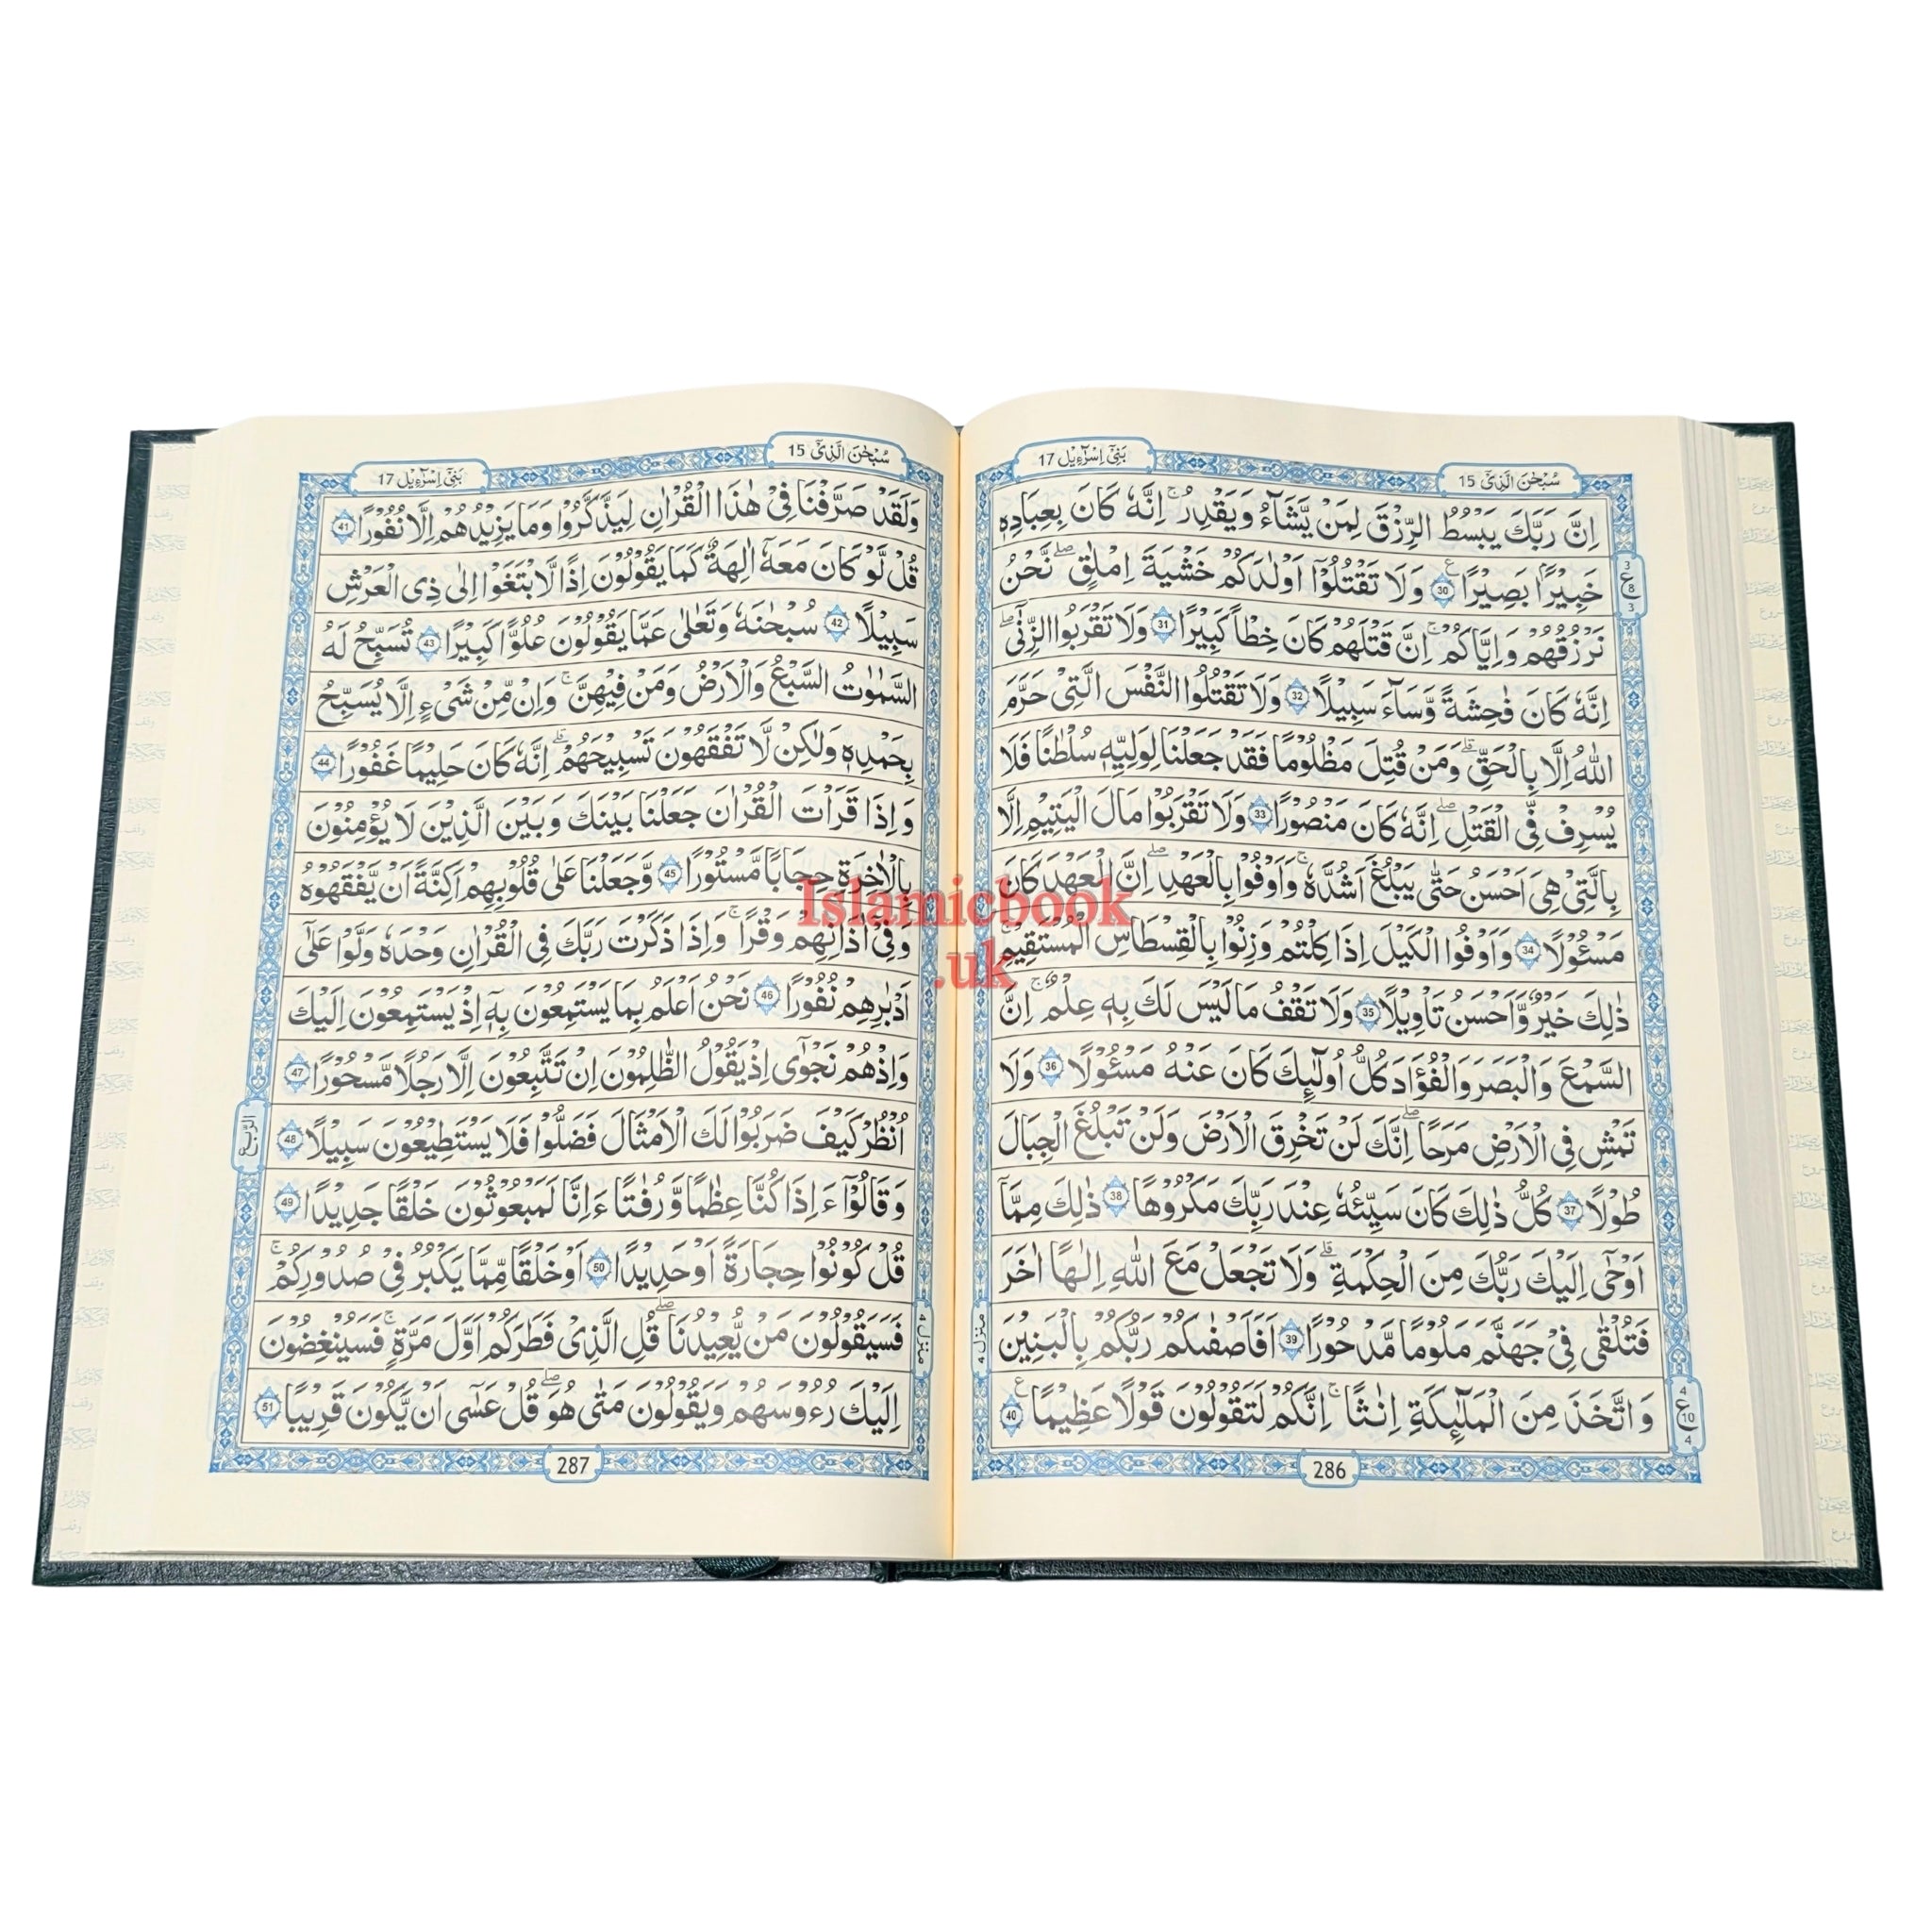 سُبْحٰنَ الَّذِیْۤ 15
بَنِیْۤ اِسْرَآءِیْل 17
اِنَّ رَبَّكَ یَبْسُطُ الرِّزْقَ لِمَنْ یَّشَآءُ وَیَقْدِرُ ؕ اِنَّهٗ كَانَ بِعِبَادِهٖ
خَبِیْرًۢا بَصِیْرًا 30 وَلَا تَقْتُلُوْۤا اَوْلَادَكُمْ خَشْیَةَ اِمْلَاقٍ ؕ نَحْنُ
نَرْزُقُهُمْ وَاِیَّاكُمْ ؕ اِنَّ قَتْلَهُمْ كَانَ خِطْاً كَبِیْرًا 31 وَلَا تَقْرَبُوا الزِّنٰۤی
اِنَّهٗ كَانَ فَاحِشَةً ؕ وَسَآءَ سَبِیْلًا 32 وَلَا تَقْتُلُوا النَّفْسَ الَّتِیْ حَرَّمَ
اللّٰهُ اِلَّا بِالْحَقِّ ؕ وَمَنْ قُتِلَ مَظْلُوْمًا فَقَدْ جَعَلْنَا لِوَلِیِّهٖ سُلْطٰنًا فَلَا
یُسْرِفْ فِّی الْقَتْلِ ؕ اِنَّهٗ كَانَ مَنْصُوْرًا 33 وَلَا تَقْرَبُوْا مَالَ الْیَتِیْمِ اِلَّا
بِالَّتِیْ هِیَ اَحْسَنُ حَتّٰی یَبْلُغَ اَشُدَّهٗ ۪ وَاَوْفُوْا بِالْعَهْدِ ۚ اِنَّ الْعَهْدَ كَانَ
مَسْـُٔوْلًا 34 وَاَوْفُوا الْكَیْلَ اِذَا كِلْتُمْ وَزِنُوْا بِالْقِسْطَاسِ الْمُسْتَقِیْمِ
ذٰلِكَ خَیْرٌ وَّاَحْسَنُ تَاْوِیْلًا 35 وَلَا تَقْفُ مَا لَیْسَ لَكَ بِهٖ عِلْمٌ ؕ اِنَّ
السَّمْعَ وَالْبَصَرَ وَالْفُؤَادَ كُلُّ اُولٰٓىِٕكَ كَانَ عَنْهُ مَسْـُٔوْلًا 36 وَلَا
تَمْشِ فِی الْاَرْضِ مَرَحًا ۚ اِنَّكَ لَنْ تَخْرِقَ الْاَرْضَ وَلَنْ تَبْلُغَ الْجِبَالَ
طُوْلًا 37 كُلُّ ذٰلِكَ كَانَ سَیِّئُهٗ عِنْدَ رَبِّكَ مَكْرُوْهًا 38 ذٰلِكَ مِمَّاۤ
اَوْحٰۤی اِلَیْكَ رَبُّكَ مِنَ الْحِكْمَةِ ؕ وَلَا تَجْعَلْ مَعَ اللّٰهِ اِلٰهًا اٰخَرَ
فَتُلْقٰی فِیْ جَهَنَّمَ مَلُوْمًا مَّدْحُوْرًا 39 اَفَاَصْفٰىكُمْ رَبُّكُمْ بِالْبَنِیْنَ
وَاتَّخَذَ مِنَ الْمَلٰٓىِٕكَةِ اِنَاثًا ؕ اِنَّكُمْ لَتَقُوْلُوْنَ قَوْلًا عَظِیْمًا 40
3
ع
8
3
منزل ٤
4
ع
10
4
286
سُبْحٰنَ الَّذِیْۤ 15
بَنِیْۤ اِسْرَآءِیْل 17
وَلَقَدْ صَرَّفْنَا فِیْ هٰذَا الْقُرْاٰنِ لِیَذَّكَّرُوْا وَمَا یَزِیْدُهُمْ اِلَّا نُفُوْرًا 41
قُلْ لَّوْ كَانَ مَعَهٗۤ اٰلِهَةٌ كَمَا یَقُوْلُوْنَ اِذًا لَّابْتَغَوْا اِلٰی ذِی الْعَرْشِ
سَبِیْلًا 42 سُبْحٰنَهٗ وَتَعٰلٰی عَمَّا یَقُوْلُوْنَ عُلُوًّا كَبِیْرًا 43 تُسَبِّحُ لَهُ
السَّمٰوٰتُ السَّبْعُ وَالْاَرْضُ وَمَنْ فِیْهِنَّ ؕ وَاِنْ مِّنْ شَیْءٍ اِلَّا یُسَبِّحُ
بِحَمْدِهٖ وَلٰكِنْ لَّا تَفْقَهُوْنَ تَسْبِیْحَهُمْ ؕ اِنَّهٗ كَانَ حَلِیْمًا غَفُوْرًا 44
وَاِذَا قَرَاْتَ الْقُرْاٰنَ جَعَلْنَا بَیْنَكَ وَبَیْنَ الَّذِیْنَ لَا یُؤْمِنُوْنَ
بِالْاٰخِرَةِ حِجَابًا مَّسْتُوْرًا 45 وَّجَعَلْنَا عَلٰی قُلُوْبِهِمْ اَكِنَّةً اَنْ یَّفْقَهُوْهُ
وَفِیْۤ اٰذَانِهِمْ وَقْرًا ؕ وَاِذَا ذَكَرْتَ رَبَّكَ فِی الْقُرْاٰنِ وَحْدَهٗ وَلَّوْا عَلٰۤی
اَدْبَارِهِمْ نُفُوْرًا 46 نَحْنُ اَعْلَمُ بِمَا یَسْتَمِعُوْنَ بِهٖۤ اِذْ یَسْتَمِعُوْنَ اِلَیْكَ
وَاِذْ هُمْ نَجْوٰۤی اِذْ یَقُوْلُ الظّٰلِمُوْنَ اِنْ تَتَّبِعُوْنَ اِلَّا رَجُلًا مَّسْحُوْرًا 47
اُنْظُرْ كَیْفَ ضَرَبُوْا لَكَ الْاَمْثَالَ فَضَلُّوْا فَلَا یَسْتَطِیْعُوْنَ سَبِیْلًا 48
وَقَالُوْۤا ءَاِذَا كُنَّا عِظَامًا وَّرُفَاتًا ءَاِنَّا لَمَبْعُوْثُوْنَ خَلْقًا جَدِیْدًا 49
قُلْ كُوْنُوْا حِجَارَةً اَوْ حَدِیْدًا 50 اَوْ خَلْقًا مِّمَّا یَكْبُرُ فِیْ صُدُوْرِكُمْ ۚ
فَسَیَقُوْلُوْنَ مَنْ یُّعِیْدُنَا ؕ قُلِ الَّذِیْ فَطَرَكُمْ اَوَّلَ مَرَّةٍ ۚ فَسَیُنْغِضُوْنَ
اِلَیْكَ رُءُوْسَهُمْ وَیَقُوْلُوْنَ مَتٰی هُوَ ؕ قُلْ عَسٰۤی اَنْ یَّكُوْنَ قَرِیْبًا 51
الربع
منزل ٤
287
Islamicbook
.uk